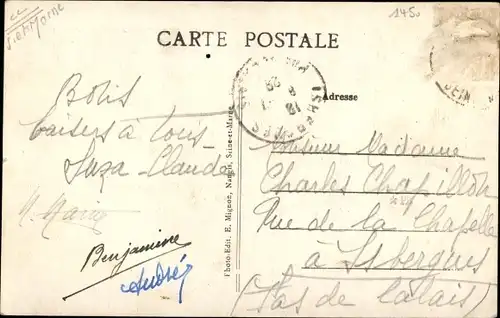 1450
CARTE POSTALE
Adresse
Bons
baisers à tous
Suza-Claude
Benjamine
André
Photo-Edit. E. Mignon, Nangis, Seine-et-Marne
Monsieur Madame
Charles Chapillon
Rue de la Chapelle
à Isbergues
(Pas de Calais)